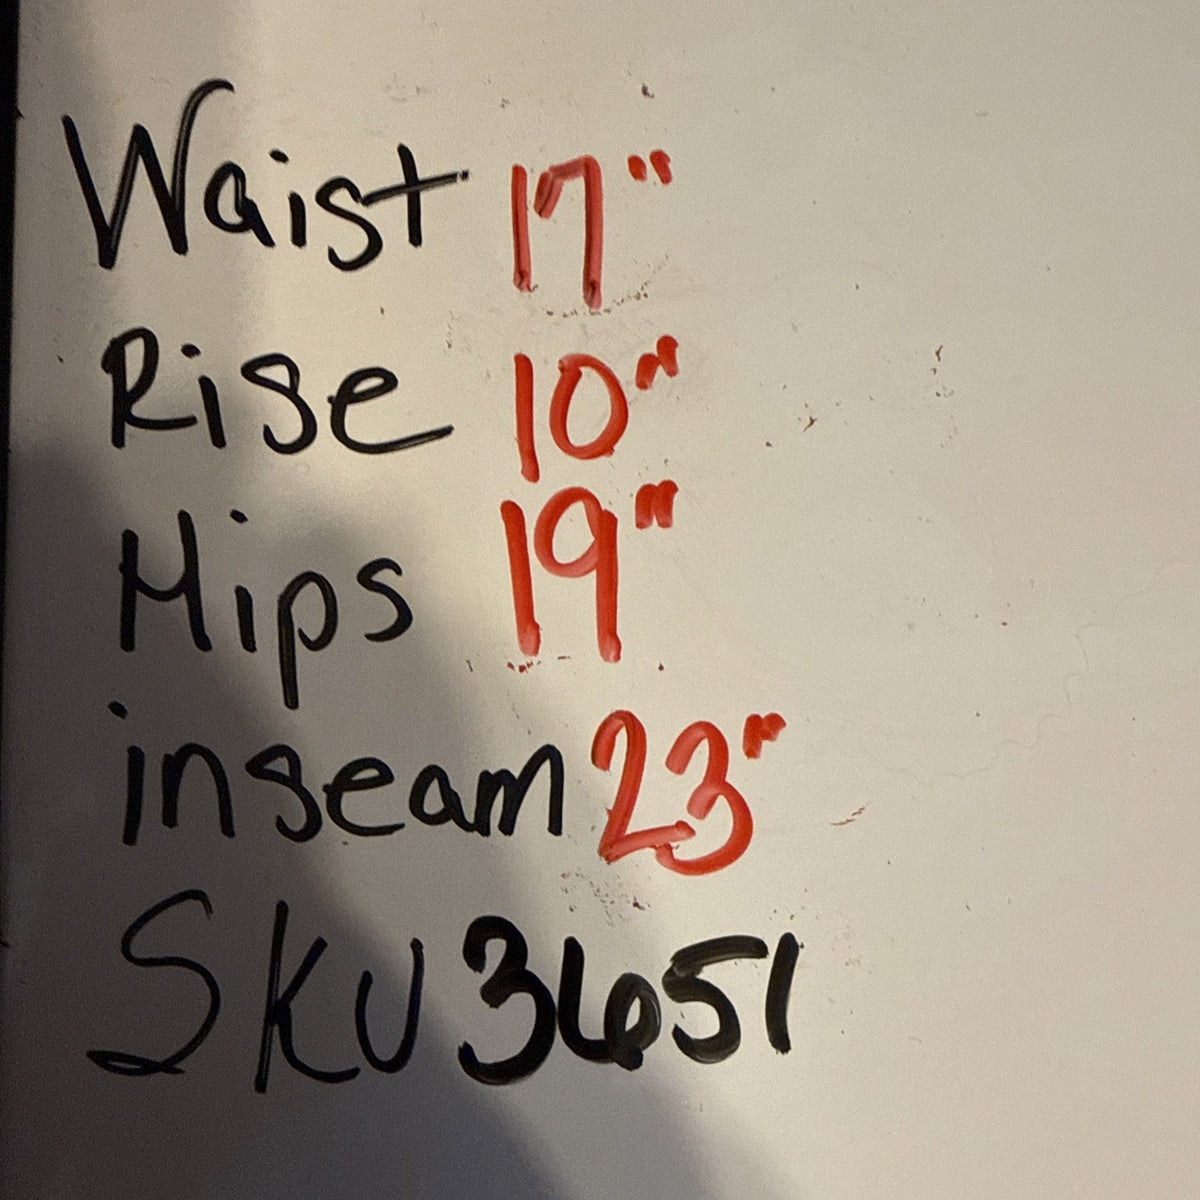 Waist 17"
Rise 10"
Hips 19"
inseam 23"
SKU 3651